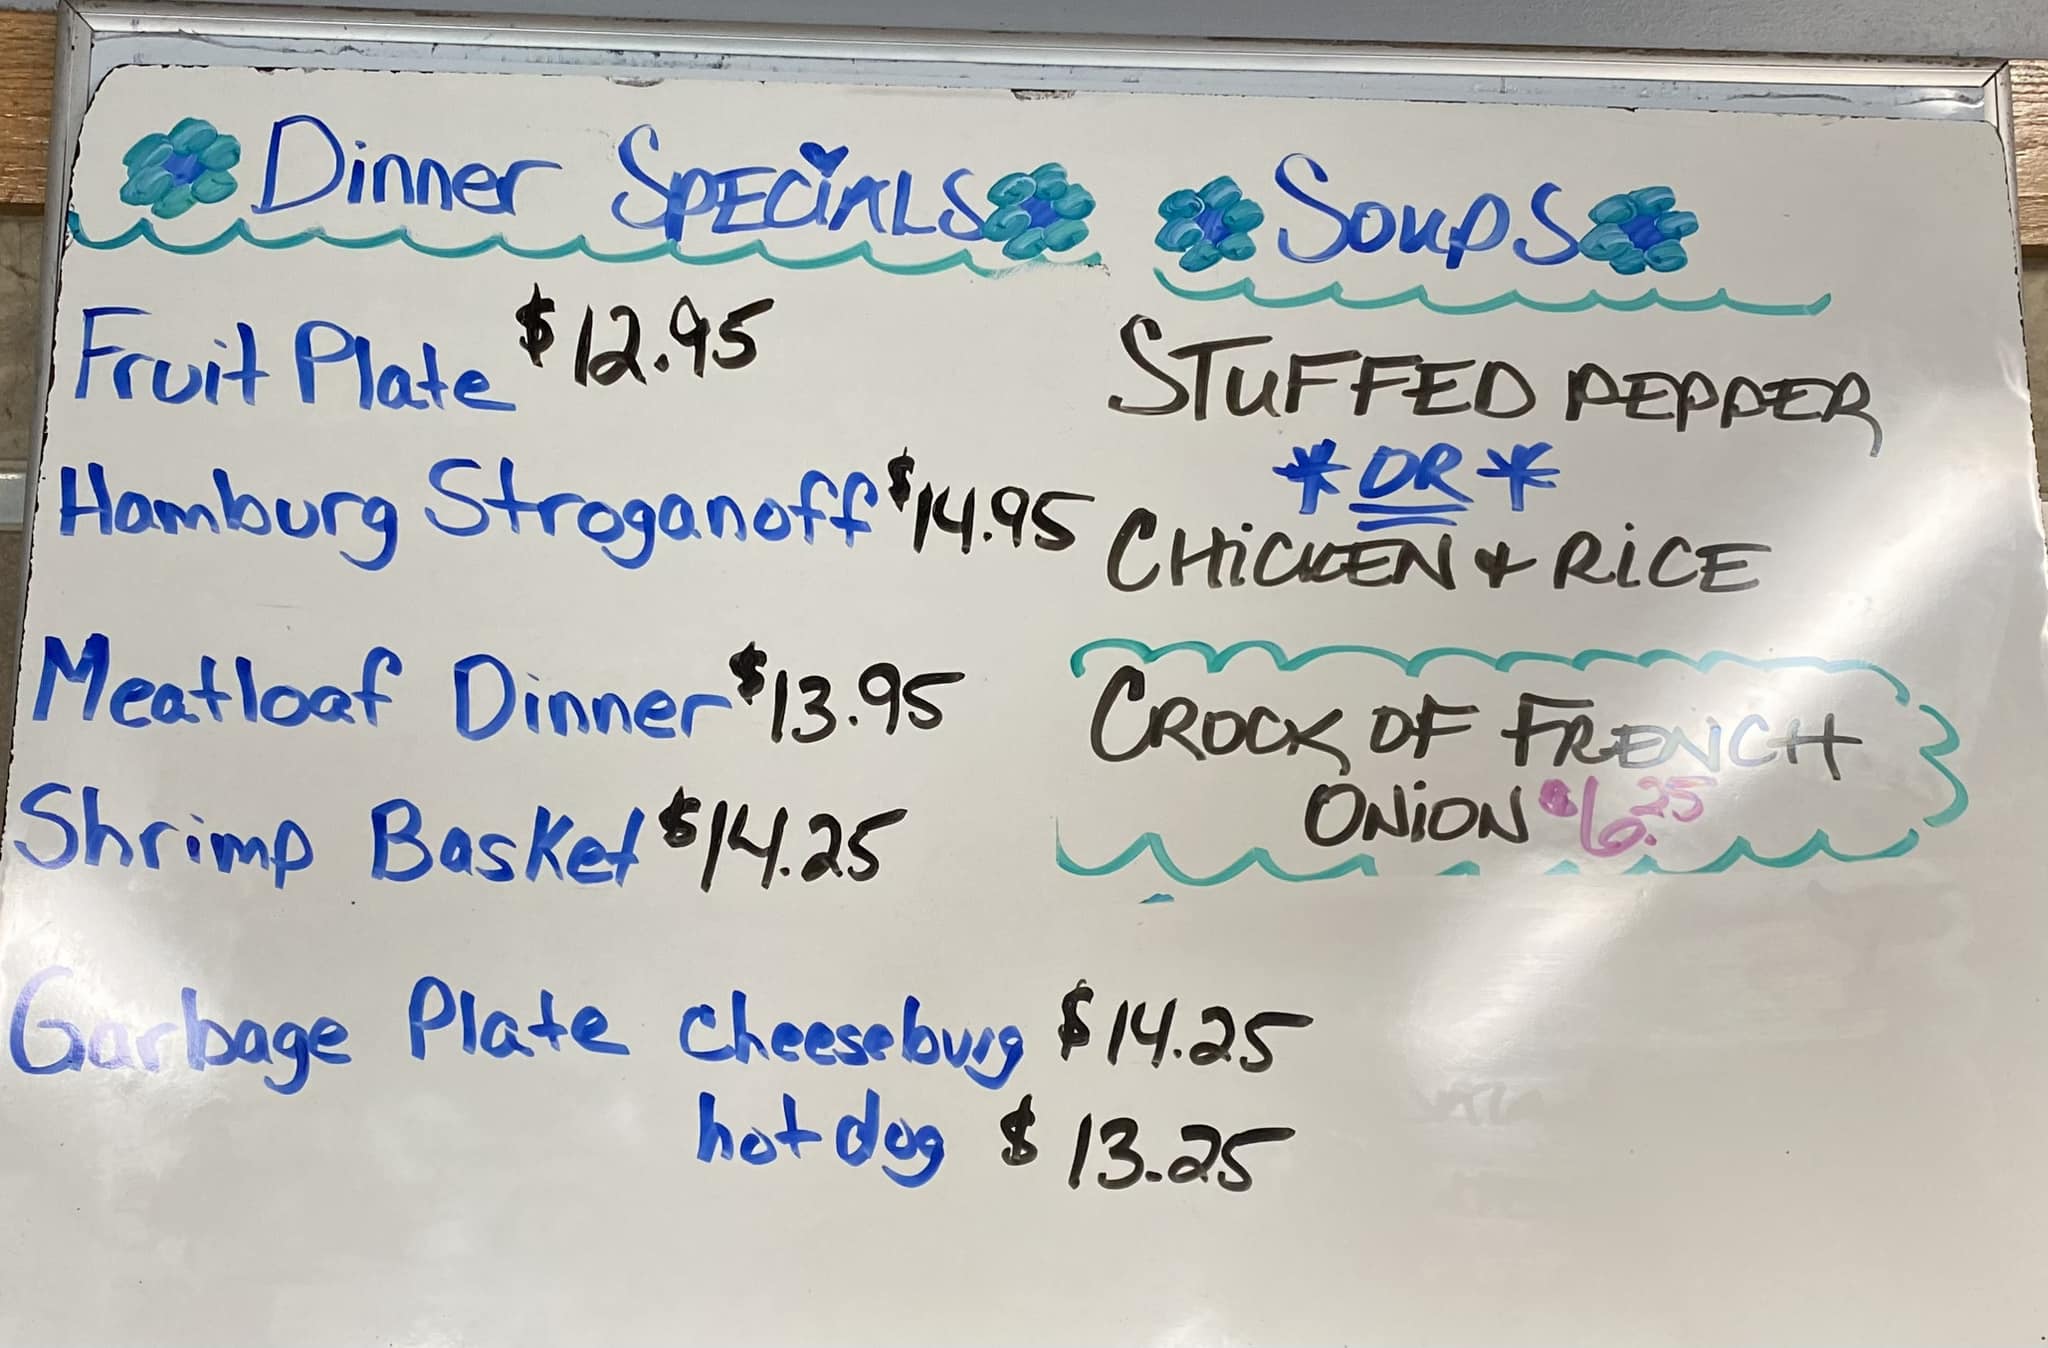 Dinner SPECiALS
Fruit Plate $12.95
Hamburg Stroganoff $14.95
Meatloaf Dinner $13.95
Shrimp Basket $14.25
Garbage Plate cheeseburg $14.25
hot dog $13.25
SoupS
STuFFED PEPPER
*OR*
CHiCKEN + RiCE
CROCK OF FRENCH
ONiON $6.25